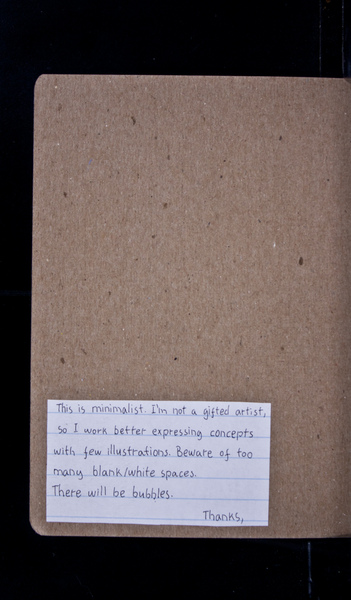 This is minimalist. I'm not a gifted artist,
so I work better expressing concepts
with few illustrations. Beware of too
many blank/white spaces.
There will be bubbles.
Thanks,